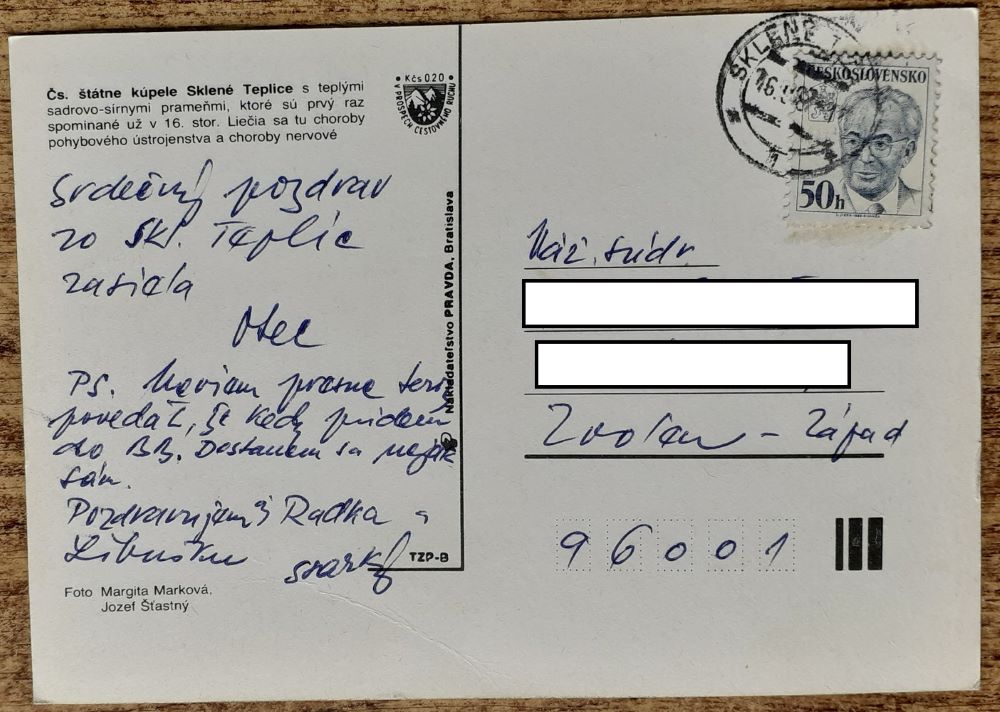 Čs. štátne kúpele Sklené Teplice s teplými
sadrovo-sírnymi prameňmi, ktoré sú prvý raz
spomínané už v 16. stor. Liečia sa tu choroby
pohybového ústrojenstva a choroby nervové
• Kčs 0.20 •
V PROSPECH CESTOVNÉHO RUCHU
Srdečný pozdrav
zo Skl. Teplíc
zasiela
Otec
PS. Neviem presne teraz
povedať, že kedy prídem
do BB. Dostanem sa nejak
sám.
Pozdravujem aj Radka a
Libušku
starký
TZP-B
Foto Margita Marková,
Jozef Šťastný
Nakladateľstvo PRAVDA, Bratislava
SKLENÉ
16.
ČESKOSLOVENSKO
50h
Váž. súdr.
Zvolen - Západ
96001